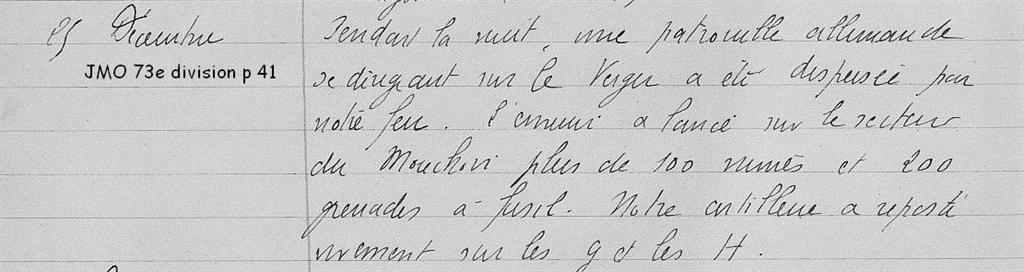 25 Décembre
JMO 73e division p 41
Pendant la nuit, une patrouille allemande
se dirigeant sur le Verger a été dispersée par
notre feu. L'ennemi a lancé sur le secteur
du Mouchoir plus de 100 minés et 200
grenades à fusil. Notre artillerie a reposté
vivement sur les G et les H.